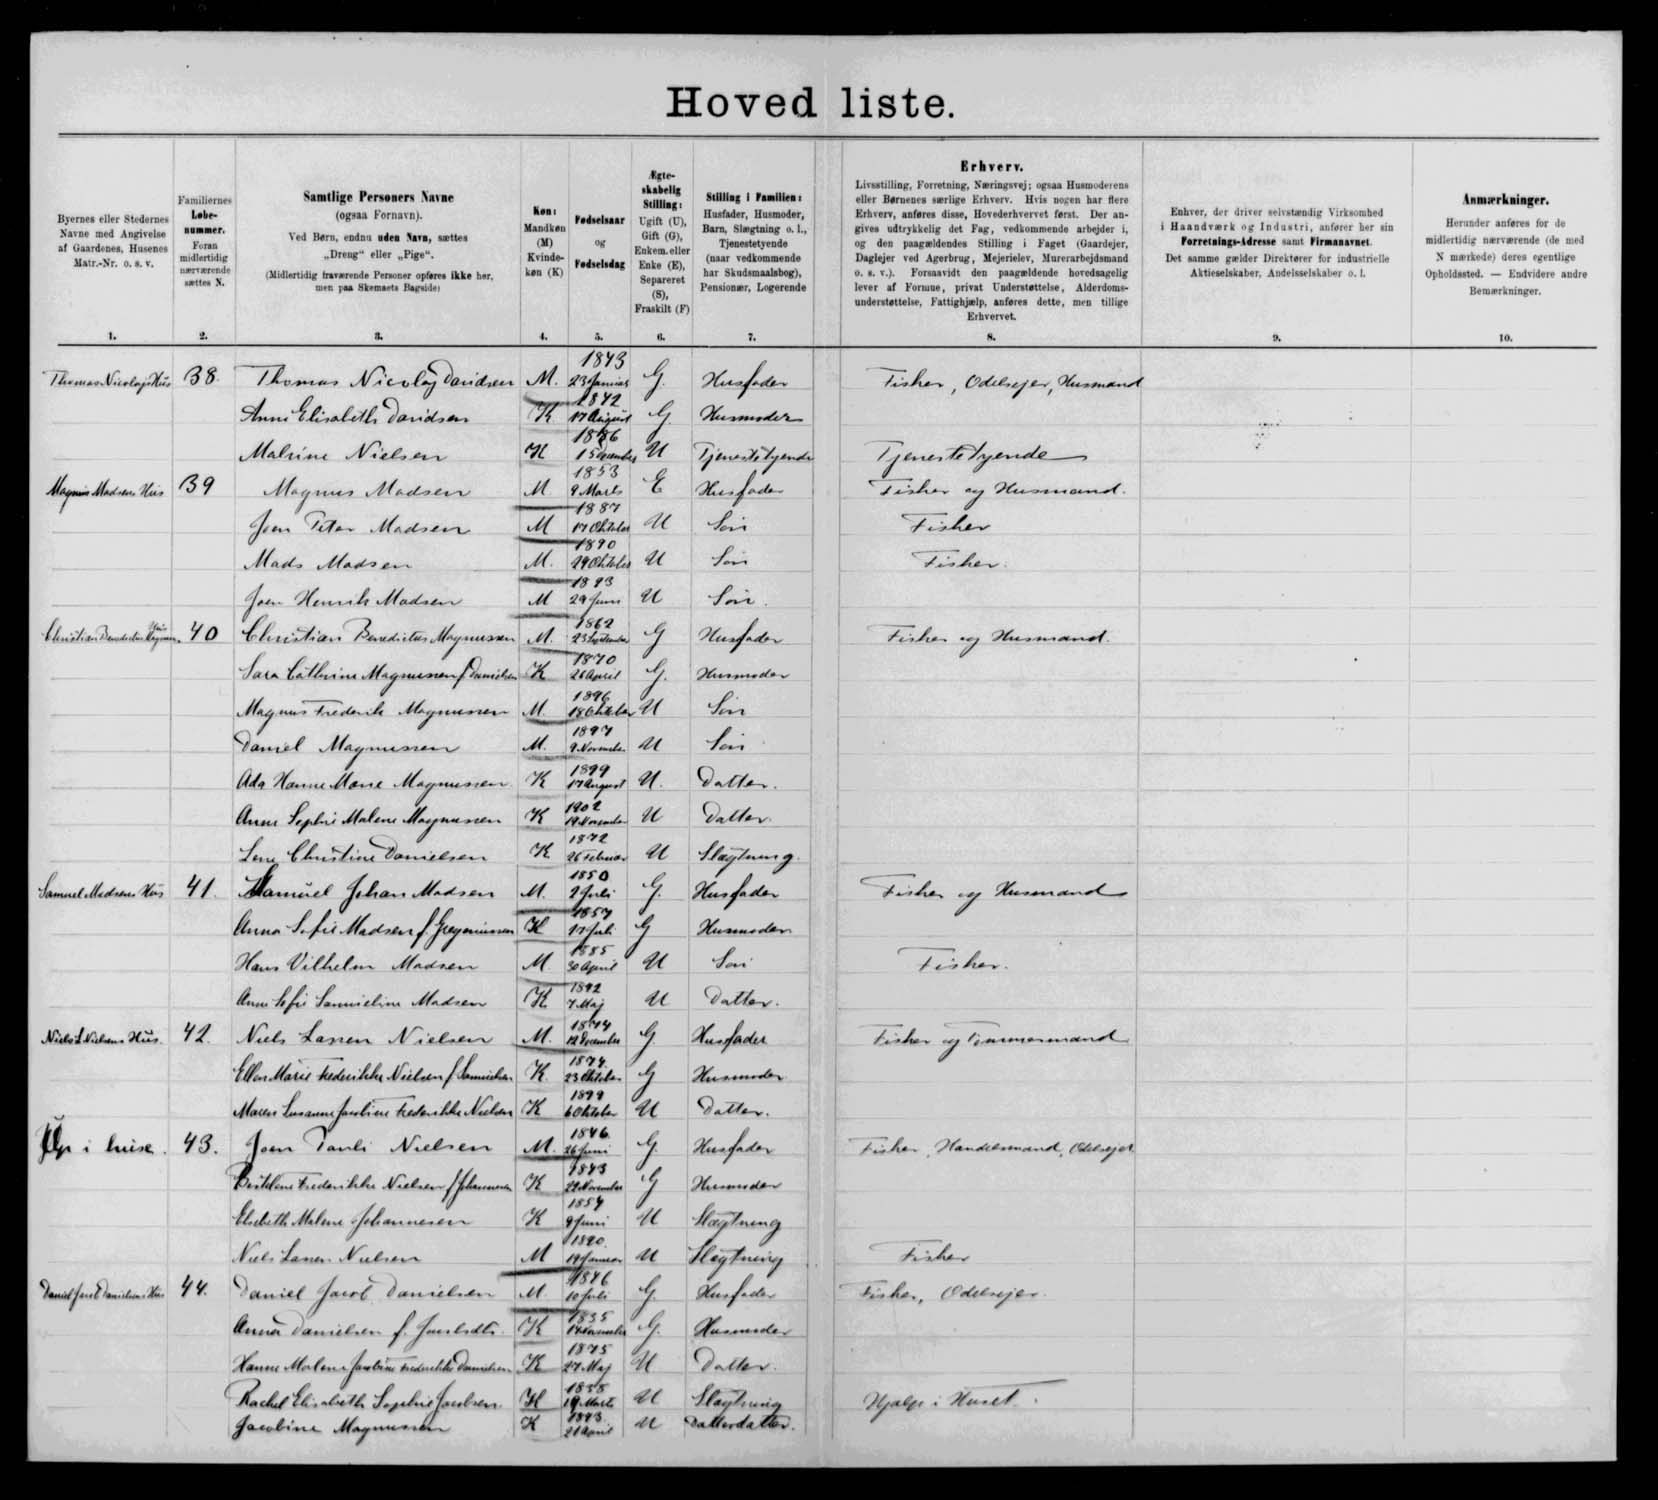 Hoved liste.
Byernes eller Stedernes
Navne med Angivelse
af Gaardenes, Husenes
Matr.-Nr. o. s. v.
1.
Familiernes
Løbe-
nummer.
Foran
midlertidig
nærværende
sættes N.
2.
Samtlige Personers Navne
(ogsaa Fornavn).
Ved Børn, endnu uden Navn, sættes
„Dreng“ eller „Pige“.
(Midlertidig fraværende Personer opføres ikke her,
men paa Skemaets Bagside)
3.
Køn:
Mandkøn
(M)
Kvinde-
køn (K)
4.
Fødselsaar
og
Fødselsdag
5.
Ægte-
skabelig
Stilling:
Ugift (U),
Gift (G),
Enkem. eller
Enke (E),
Separeret
(S),
Fraskilt (F)
6.
Stilling i Familien:
Husfader, Husmoder,
Barn, Slægtning o. l.,
Tjenestetyende
(naar vedkommende
har Skudsmaalsbog),
Pensionær, Logerende
7.
Erhverv.
Livsstilling, Forretning, Næringsvej; ogsaa Husmoderens
eller Børnenes særlige Erhverv. Hvis nogen har flere
Erhverv, anføres disse, Hovederhvervet først. Der an-
gives udtrykkelig det Fag, vedkommende arbejder i,
og den paagældendes Stilling i Faget (Gaardejer,
Daglejer ved Agerbrug, Mejerielev, Murerarbejdsmand
o. s. v.). Forsaavidt den paagældende hovedsagelig
lever af Formue, privat Understøttelse, Alderdoms-
understøttelse, Fattighjælp, anføres dette, men tillige
Erhvervet.
8.
Enhver, der driver selvstændig Virksomhed
i Haandværk og Industri, anfører her sin
Forretnings-Adresse samt Firmanavnet.
Det samme gælder Direktører for industrielle
Aktieselskaber, Andelsselskaber o. l.
9.
Anmærkninger.
Herunder anføres for de
midlertidig nærværende (de med
N mærkede) deres egentlige
Opholdssted. — Endvidere andre
Bemærkninger.
10.
Thomas Nicolajs Hus 38. Thomas Nicolaj Davidsen M. 1843 23 Januar G. Husfader Fisker, Odelsejer, Husmand
Anne Elisabeth Davidsen K 1842 17 August G. Husmoder
Malvine Nielsen K 1886 15 December U Tjenestetyende Tjenestetyende
Magnus Madsens Hus 39 Magnus Madsen M. 1853 9 Marts E Husfader Fisker og Husmand.
Joen Peter Madsen M 1887 17 Oktober U Søn Fisker
Mads Madsen M. 1890 29 Oktober U Søn Fisker.
Joen Henrik Madsen M 1893 29 Juni U Søn.
Christian Benedictus Magnus. Hus 40 Christian Benedictus Magnussen M. 1862 23 September G Husfader Fisker og Husmand.
Sara Cathrine Magnussen f Danielsen K 1870 26 April G. Husmoder
Magnus Frederik Magnussen M. 1896 18 Oktober U Søn
Daniel Magnussen M. 1897 9 November U Søn
Ada Hanne Marie Magnussen K 1899 17 August U. Datter.
Anne Sophie Malene Magnussen K 1902 19 November U Datter.
Lene Christine Danielsen K 1872 26 Februar U Slægtning.
Samuel Madsens Hus 41. Samuel Johan Madsen M. 1850 2 Juli G. Husfader Fisker og Husmand
Anna Sofie Madsen f. Gregoriussen K 1857 17 Juli G Husmoder
Hans Vilhelm Madsen M. 1885 30 April U Søn Fisker.
Anne Sofie Samueline Madsen K 1892 7 Maj U Datter.
Niels L Nielsens Hus. 42. Niels Lassen Nielsen M. 1874 12 December G Husfader Fisker og Tømmermand
Ellen Marie Frederikke Nielsen f Samuelsen K. 1874 23 Oktober G Husmoder
Maren Susanne Jacobine Frederikke Nielsen K 1899 6 Oktober U Datter.
i huse. 43. Joen Pauli Nielsen M. 1846. 26 Juni G. Husfader Fisker, Handelsmand, Odelsejer
Frederikke Nielsen f Johannesen K 1843 22 November G Husmoder
Elsebeth Malene Johannesen K 1854 9 Juni U Slægtning
Niels Lassen Nielsen M 1890. 19 Januar U Slægtning Fisker
Daniel Jacob Danielsens Hus 44. Daniel Jacob Danielsen M. 1846 10 Juli G. Husfader Fisker, Odelsejer.
Anna Danielsen f. Jacobsdtr. K 1835 14 November G. Husmoder
Hanne Malene Jacobine Frederikke Danielsen K 1875 27 Maj U Datter.
Rachel Elisabeth Sophie Jacobsen K 1838 19 Marts U Slægtning Hjælp i Huset.
Jacobine Magnussen K 1893. 21 April U Datterdatter.